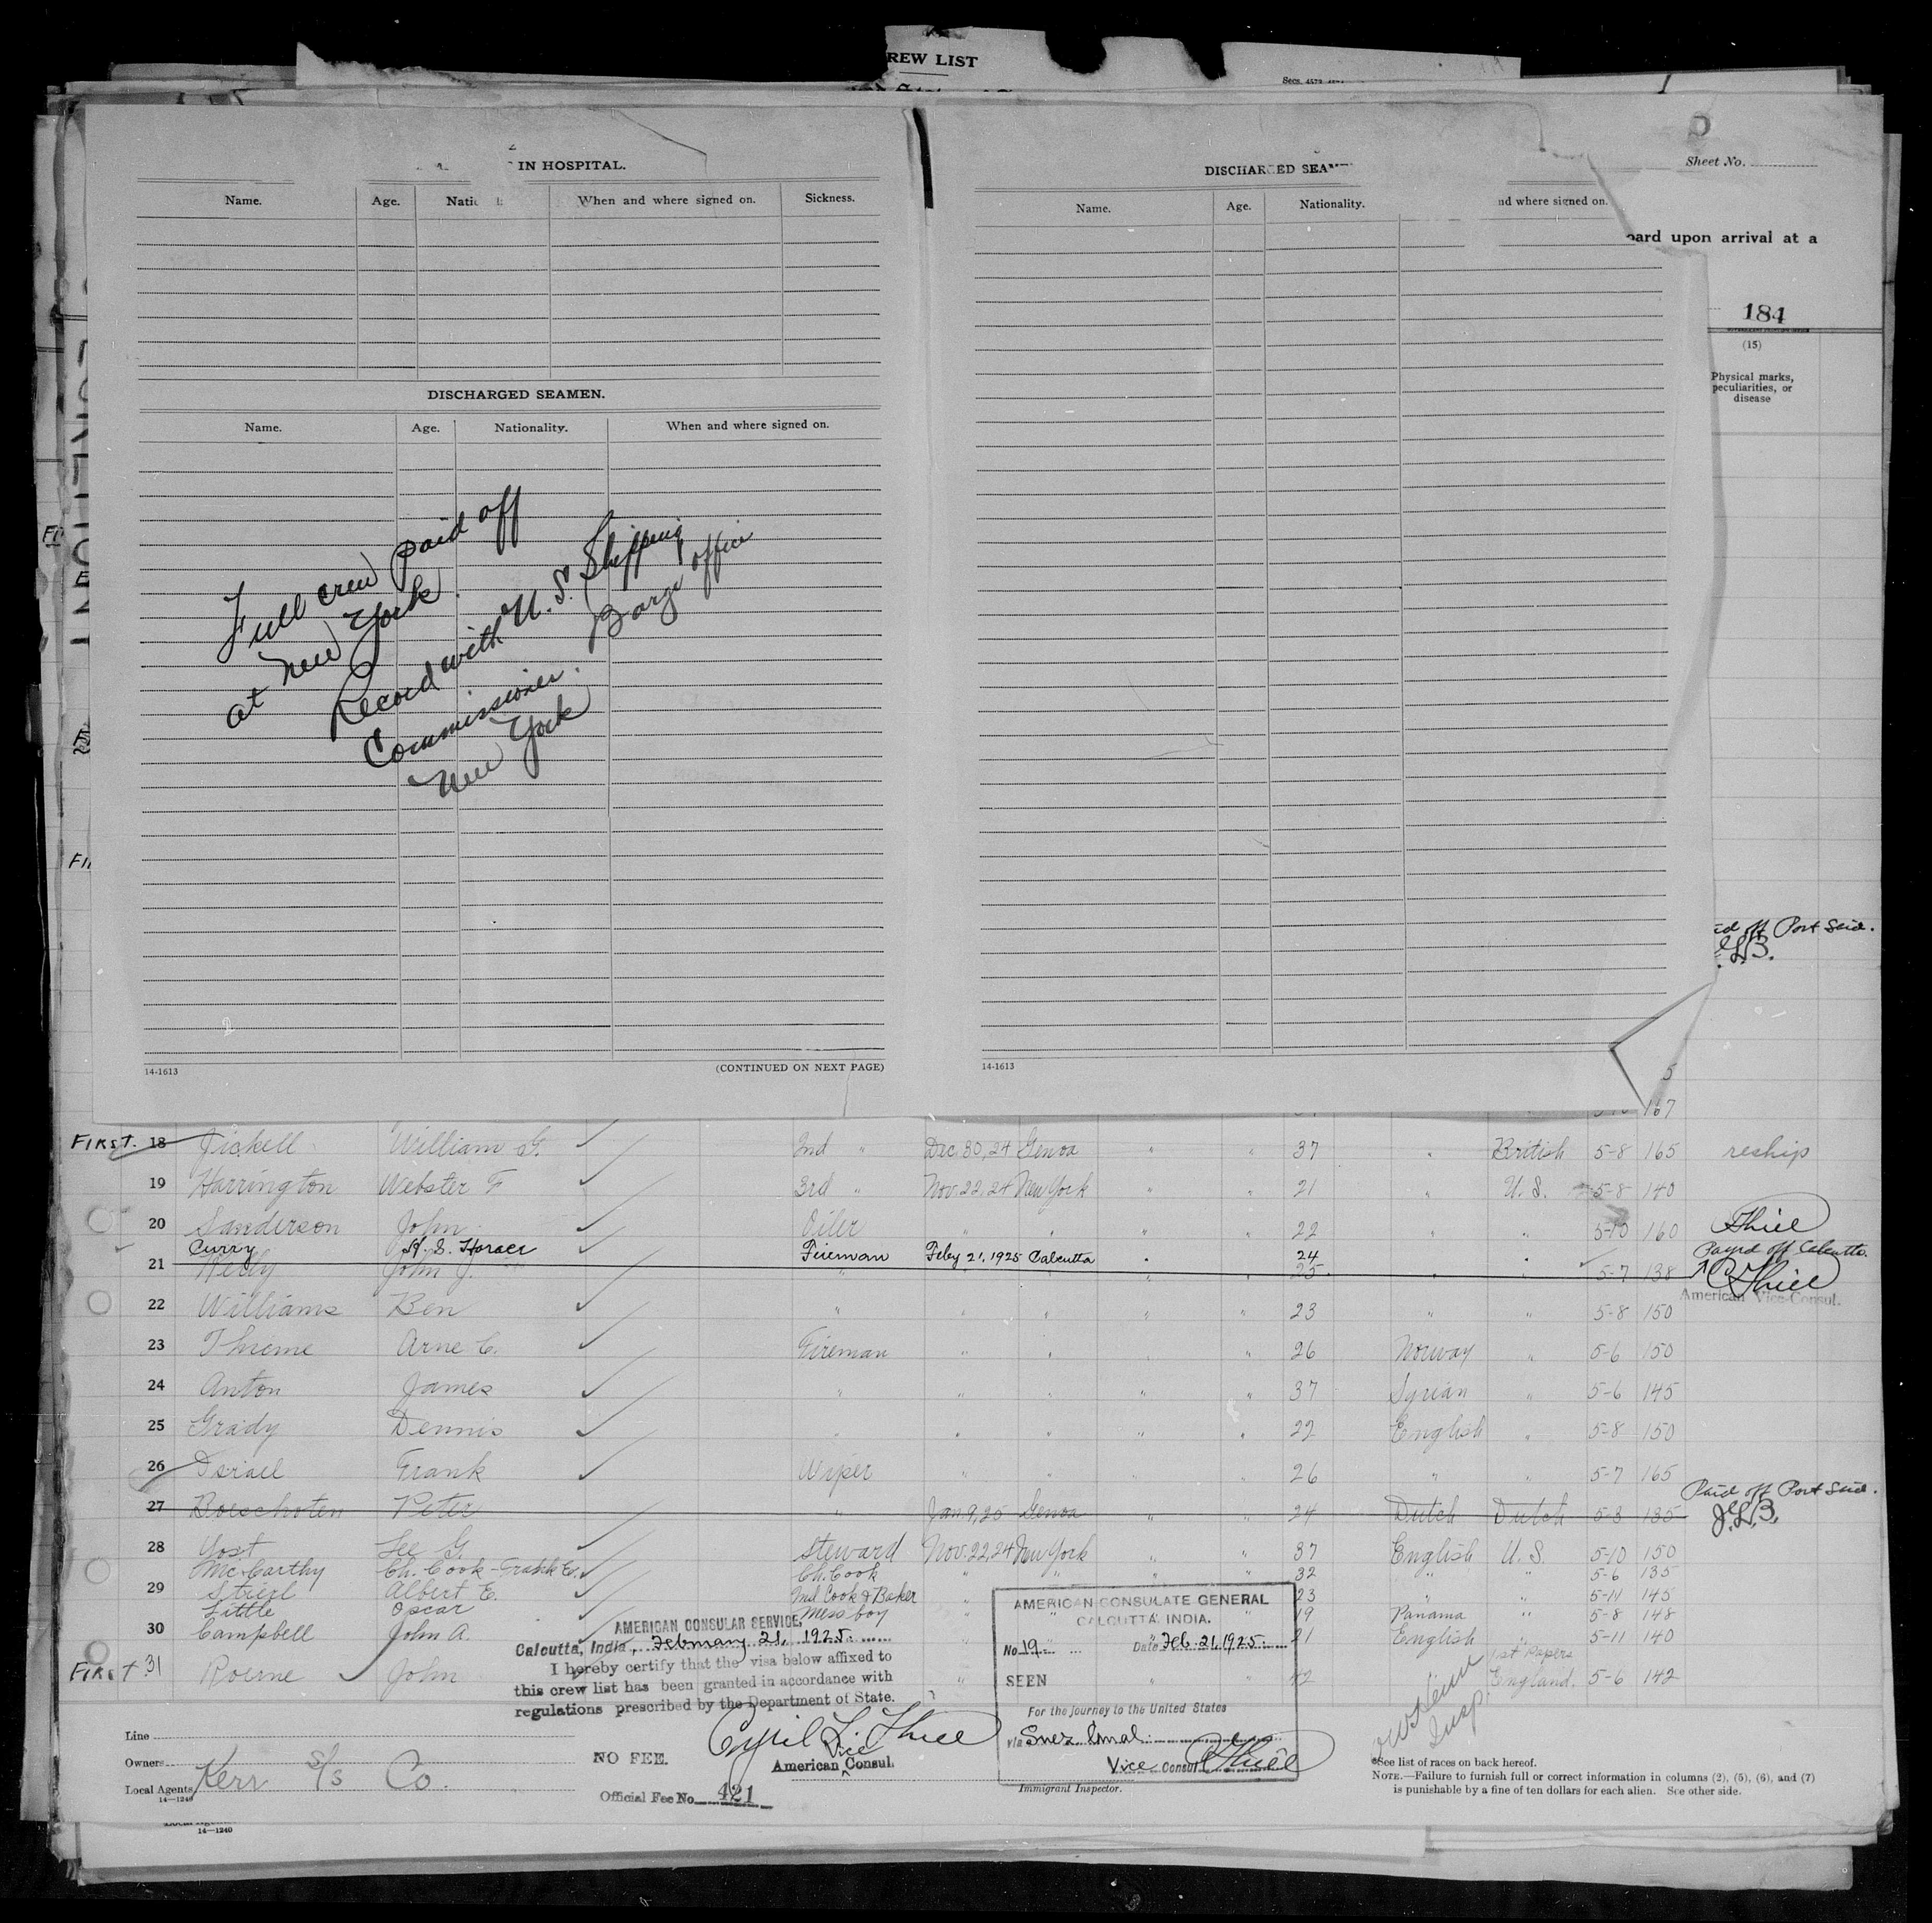 REW LIST
IN HOSPITAL.
Name. Age. When and where signed on. Sickness.
DISCHARGED SEAMEN.
Name. Age. Nationality. When and where signed on.
Full crew paid off
at New York.
Record with U.S. Shipping
Commissioner. Barge office
New York
14-1613 (CONTINUED ON NEXT PAGE)
DISCHARGED SEAM
Name. Age. Nationality. nd where signed on.
14-1613
Sheet No.
oard upon arrival at a
184
(15)
Physical marks,
peculiarities, or
disease
id off Port Said.
J.L.B.
5
167
FIRST. 18 Jickell William G. 2nd " Dec. 30, 24 Genoa " " 37 " British 5-8 165 reship
19 Harrington Webster F 3rd " Nov. 22, 24 New York " " 21 " U.S. 5-8 140
20 Sanderson John Oiler " " " " 22 " " 5-10 160 Thiel
Curry H. S. Horace Fireman Feby 21, 1925 Calcutta " 24 " Payed off Calcutta.
21 Kelly John J. " " " 25 " " 5-7 138 C Thiel
American Vice-Consul.
22 Williams Ben " " " " " 23 " " 5-8 150
23 Thieme Arne C. Fireman " " " " 26 Norway " 5-6 150
24 Anton James " " " " " 37 Syrian " 5-6 145
25 Grady Dennis " " " " " 22 English " 5-8 150
26 Israel Frank Wiper " " " " 26 " " 5-7 165
Paid off Port Said.
27 Boeschoten Peter " Jan. 9, 25 Genoa " " 24 Dutch Dutch 5-3 135 J.L.B.
28 Yost Lee G. Steward Nov. 22, 24 New York " " 37 English U.S. 5-10 150
McCarthy Ch. Cook - Frank C. Ch. Cook " " " " 32 " " 5-6 135
29 Stierl Albert E. 2nd Cook & Baker 23 " " 5-11 145
Little Oscar Mess boy " " " 19 Panama " 5-8 148
30 Campbell John A. " 21 English " 5-11 140
1st Papers
FIRST 31 Roerne John " " " 42 England. 5-6 142
AMERICAN CONSULAR SERVICE,
Calcutta, India, February 21, 1925.
I hereby certify that the visa below affixed to
this crew list has been granted in accordance with
regulations prescribed by the Department of State.
Cyril L. Thiel
Vice
American Consul.
NO FEE.
Official Fee No. 421
AMERICAN CONSULATE GENERAL
CALCUTTA INDIA.
No 19 Date Feb. 21, 1925.
SEEN
For the journey to the United States
via Suez Canal.
Vice Consul C Thiel
Immigrant Inspector.
Insp.
Line
Owners
Local Agents Kerr S/S Co.
14-1240
*See list of races on back hereof.
NOTE.—Failure to furnish full or correct information in columns (2), (5), (6), and (7)
is punishable by a fine of ten dollars for each alien. See other side.
14-1240